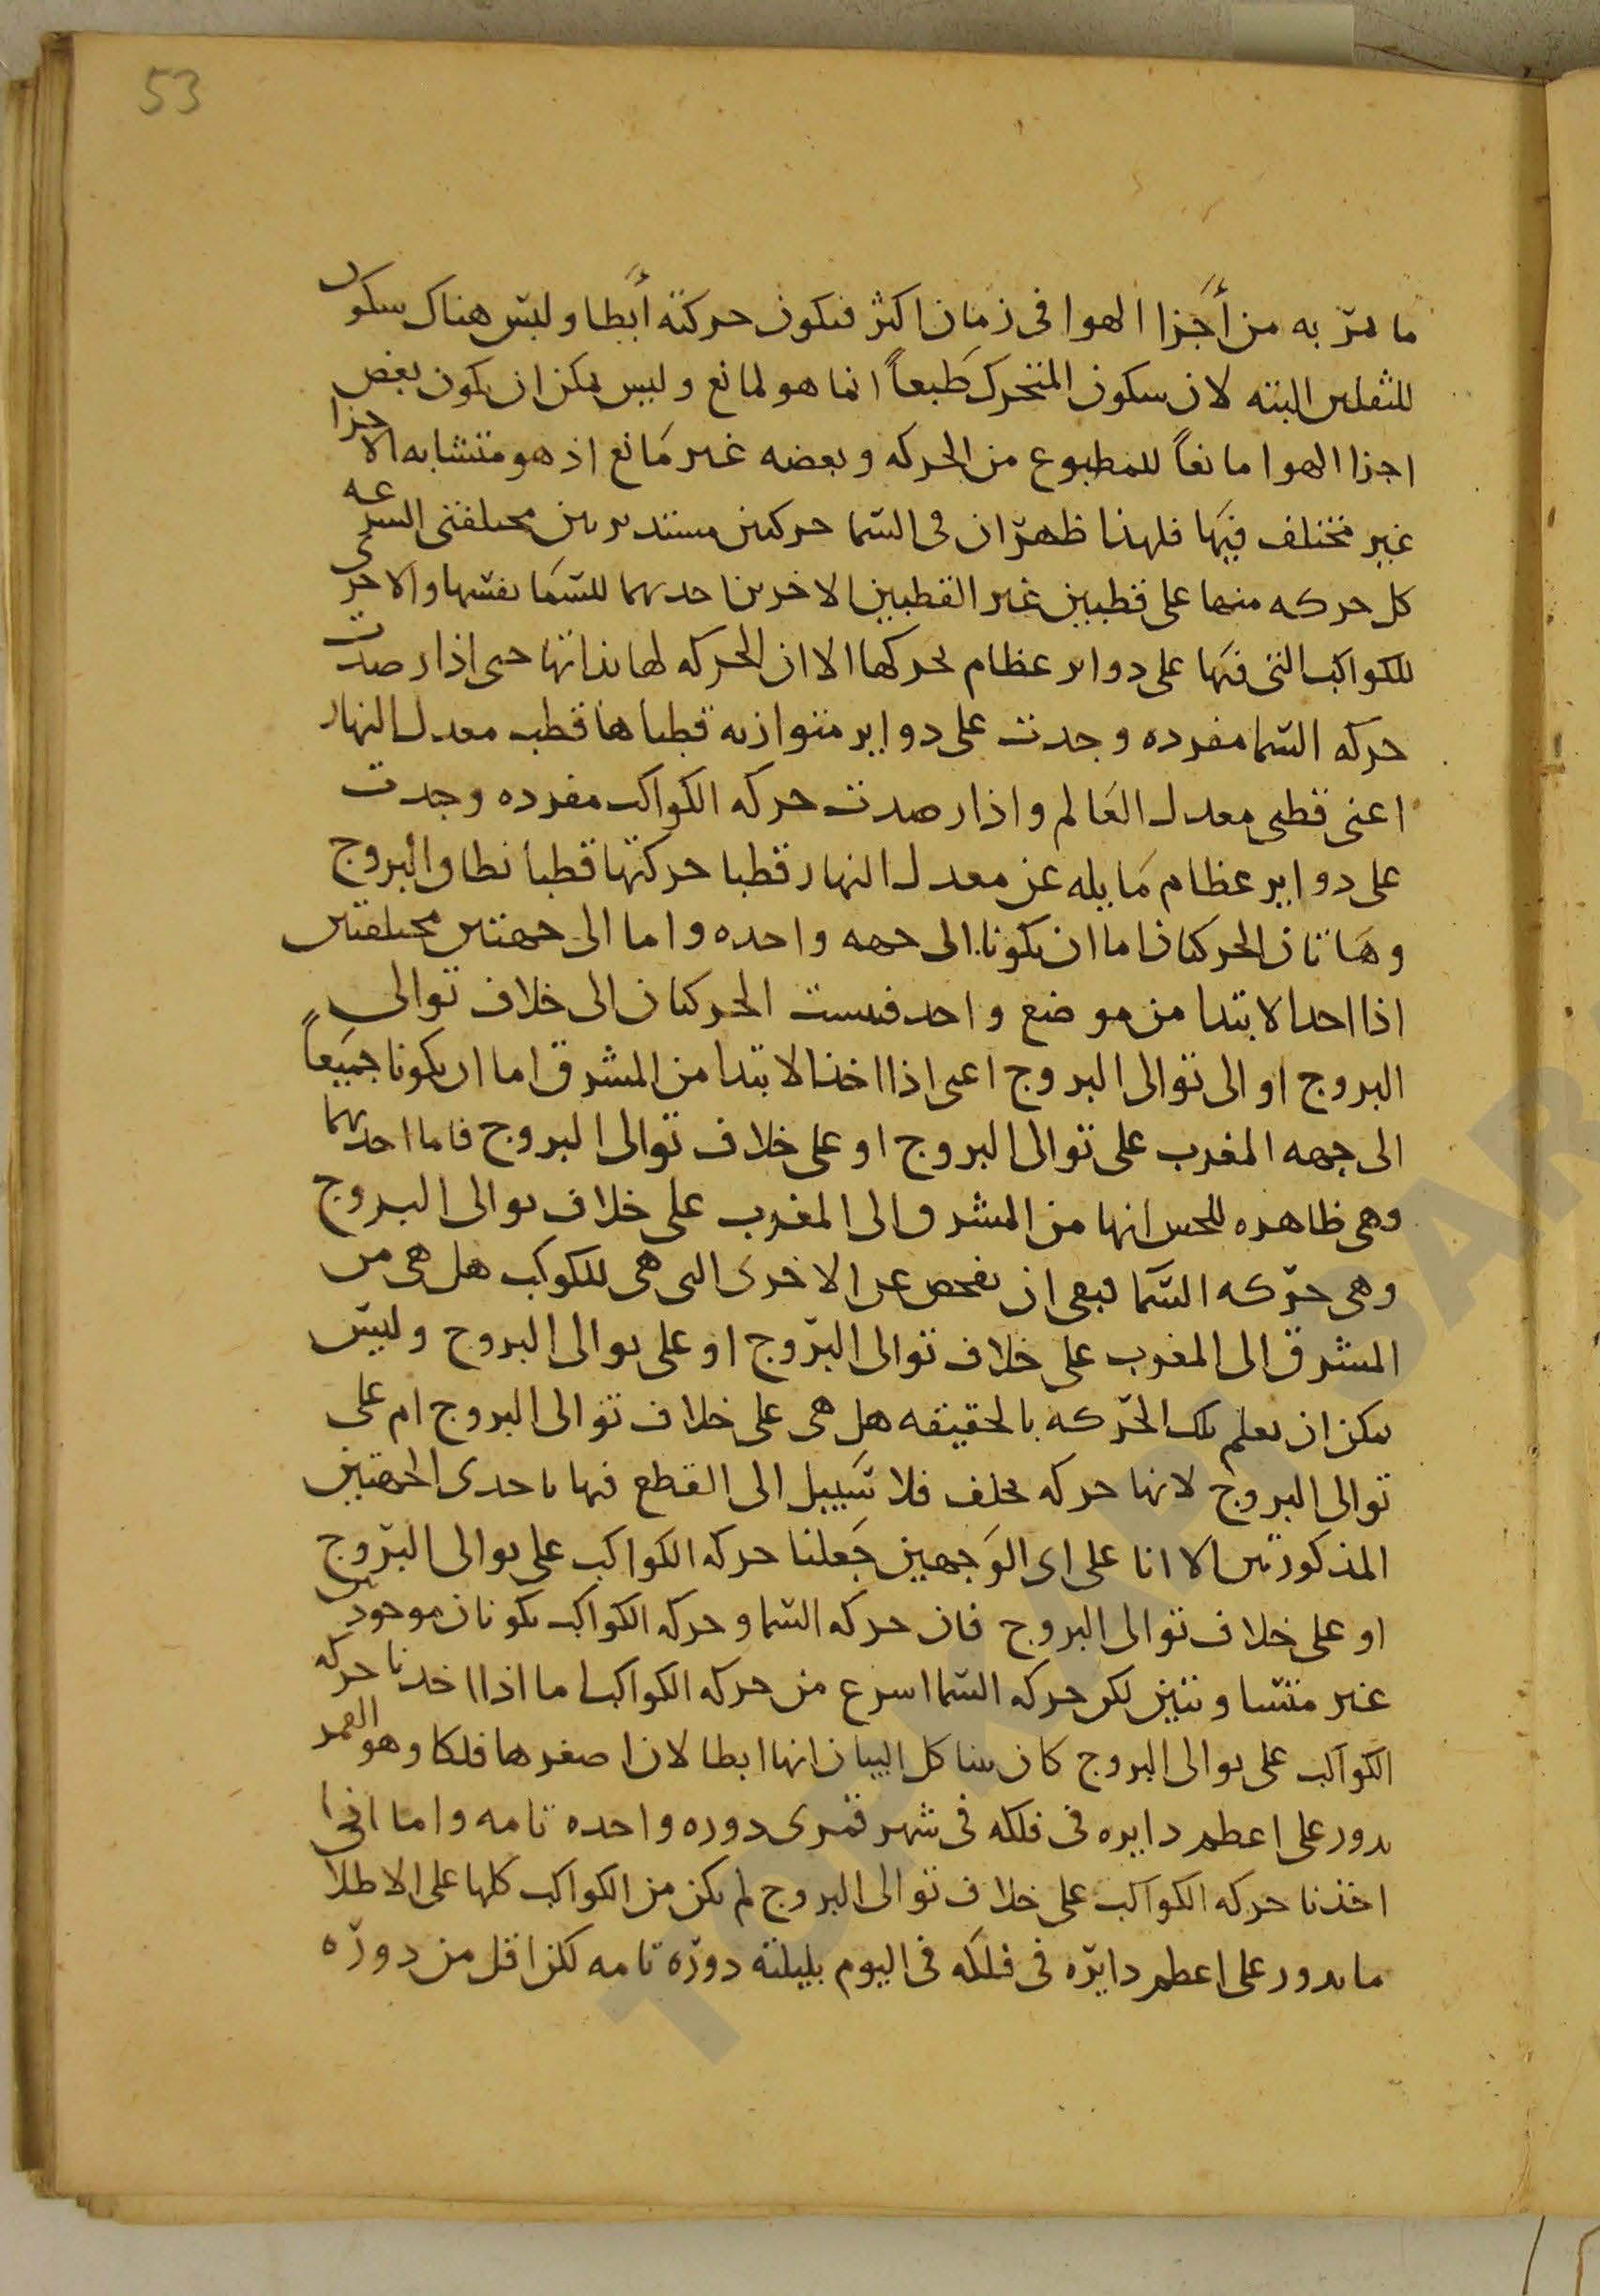 53
ما مر به من أجزا الهوا فى زمان اكثر فتكون حركته أبطا وليس هناك سكون
للثقلين البته لان سكون المتحرك طبعاً انما هو لمانع وليس يمكن ان يكون بعض
اجزا الهوا مانعاً للمطبوع من الحركه وبعضه غير مانع اذ هو متشابه الاجزا
غير مختلف فيها فلهذا ظهر ان فى السما حركتين مستديرتين مختلفتى السرعه
كل حركه منهما على قطبين غير القطبين الاخرين احديهما للسما نفسها والاخرى
للكواكب التى فيها على دواير عظام تحركها الا ان الحركه لها بذاتها حتى اذا رصدت
حركه السما مفرده وجدت على دواير متوازيه قطباها قطب معدل النهار
اعنى قطبى معدل العالم واذا رصدت حركه الكواكب مفرده وجدت
على دواير عظام مايله عن معدل النهار قطبا حركتها قطبا نطاق البروج
وهاتان الحركتان اما ان تكونا الى جهه واحده واما الى جهتين مختلفتين
اذا احدا لابتدا من موضع واحد فنسبت الحركتان الى خلاف توالى
البروج او الى توالى البروج اعنى اذا اخذ الابتدا من المشرق اما ان يكونا جميعاً
الى جهه المغرب على توالى البروج او على خلاف توالى البروج فاما احديهما
وهى ظاهره للحس انها من المشرق الى المغرب على خلاف توالى البروج
وهى حركه السما فبقى ان نفحص عن الاخرى التى هى للكوكب هل هى من
المشرق الى المغرب على خلاف توالى البروج او على توالى البروج وليس
يمكن ان يعلم تلك الحركه بالحقيقه هل هى على خلاف توالى البروج ام على
توالى البروج لانها حركه تخلف فلا سبيل الى القطع فيها باحدى الجهتين
المذكورتين الا انا على اى الوجهين جعلنا حركه الكواكب على توالى البروج
او على خلاف توالى البروج فان حركه السما وحركه الكواكب تكونان موجودتين
غير متساويتين لكن حركه السما اسرع من حركه الكواكب اما اذا اخذنا حركه
الكواكب على توالى البروج كان بينا كل البيان انها ابطا لان اصغرها فلكا وهو القمر
يدور على اعظم دايره فى فلكه فى شهر قمرى دوره واحده تامه واما اذا
اخذنا حركه الكواكب على خلاف توالى البروج لم يكن من الكواكب كلها على الاطلاق
ما يدور على اعظم دايره فى فلكه فى اليوم بليلته دوره تامه لكن اقل من دوره